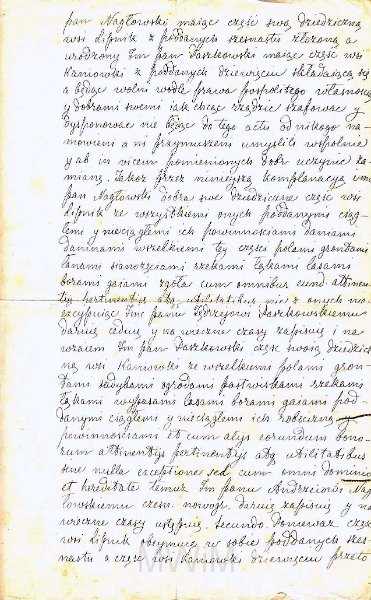 pan Nagłowski maiąc część swą dziedziczną
wsi Lipnik z poddanych szesnastu złożoną a
urodzony Im pan Paszkowski maiąc część wsi
Kaniowski z poddanych dziewięciu składaiącą się
a będąc wolni wedle prawa pospolitego własnością
y dobrami swemi iak chcąc rządzić szafować y
dysponować nie będąc do tego actu od nikogo na-
mowieni ani przymuszeni umyslili wspolnie
y ab in vicem pomienionych dobr uczynić za-
mianę. Jakoż przez ninieyszą komplanacyą Im
pan Nagłowski dobra swe dziedziczne część wsi
Lipnik ze wszystkiemi onych poddanymi ciąg-
łemi y nieciągłemi ich powinnościami daniami
daninami wszelkiemi tey części polami gruntami
łanami stanowiskami rzekami łąkami lasami
borami gaiami zgoła cum omnibus eund. attinen-
tijs pertinentijs atq. utilitatibus nic z onych nie
excypuiąc Im panu Jędrzejowi Paszkowskiemu
daruię ceduię y na wieczne czasy zapisuię i na
wzaiem Im pan Paszkowski część swoią dziedzicz
ną wsi Kaniowski ze wszelkiemi polami grun-
tami sadybami ogrodami pastwiskami rzekami
łąkami wypasami lasami borami gaiami pod-
danymi ciągłemi y nieciągłemi ich robocizną y
powinnościami et cum alijs eorundem bono-
rum attinentijs pertinentijs atq. utilitatibus
sine nulla exceptione sed cum omni dominio
et hereditate temuż Im panu Andrzeiowi Nag
łowskiemu czesn. nowogr. daruię zapisuię y na
wieczne czasy ustępuię. Secundo. Ponieważ część
wsi Lipnik obeymuię w sobie poddanych szes-
nastu a część wsi Kaniowski dziewięciu przeto
MWIM